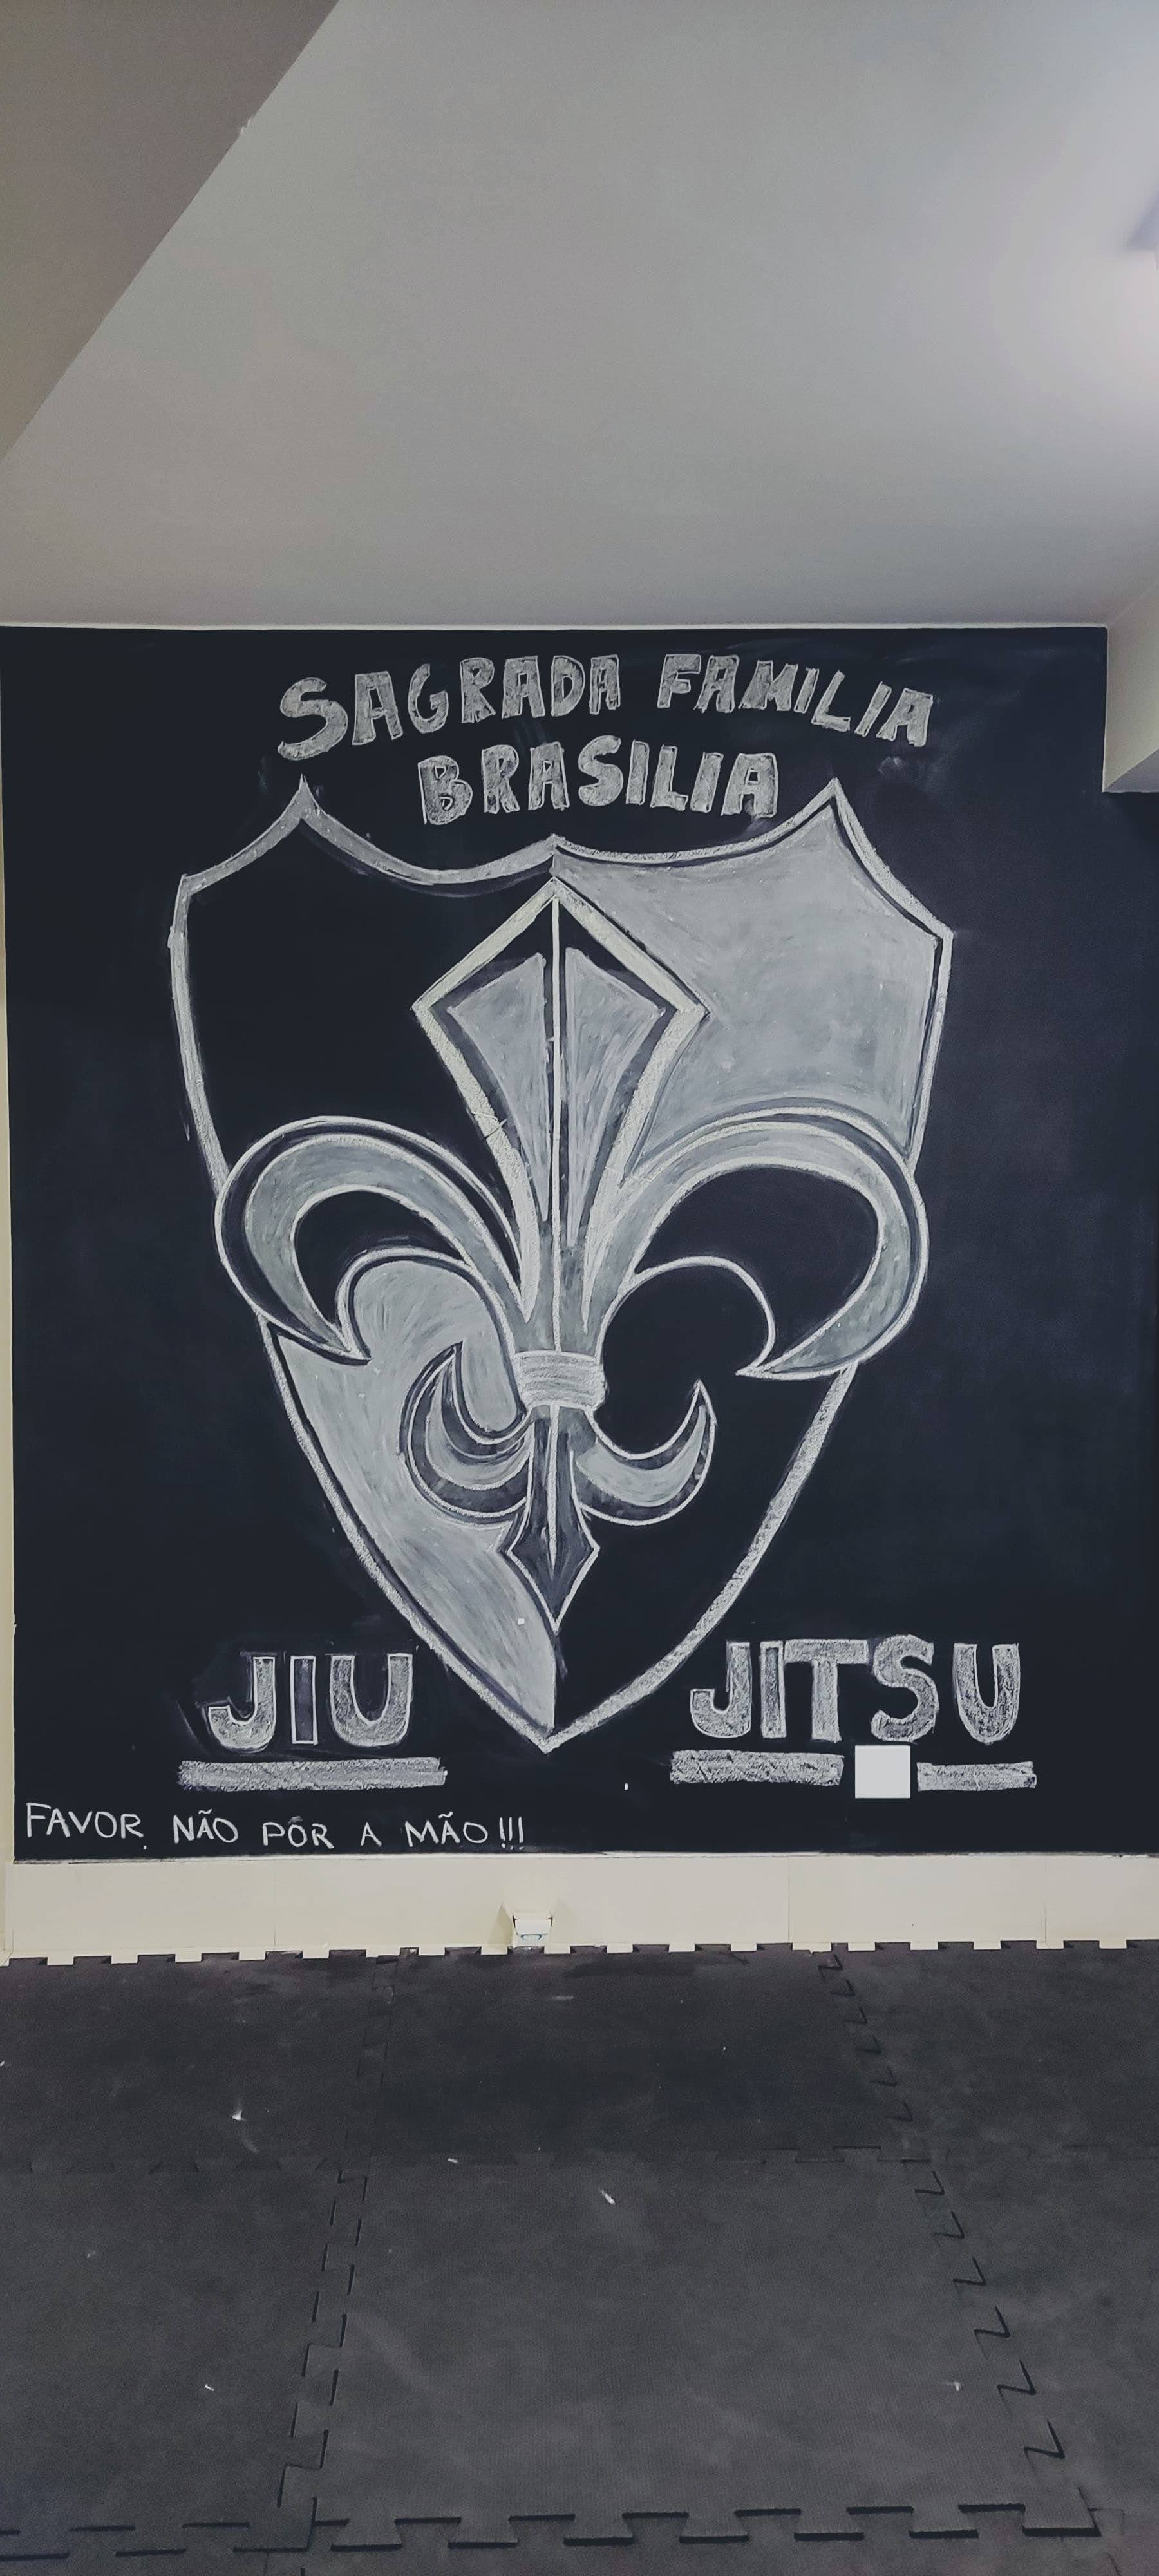 SAGRADA FAMILIA
BRASILIA
JIU JITSU
FAVOR NÃO PÔR A MÃO!!!